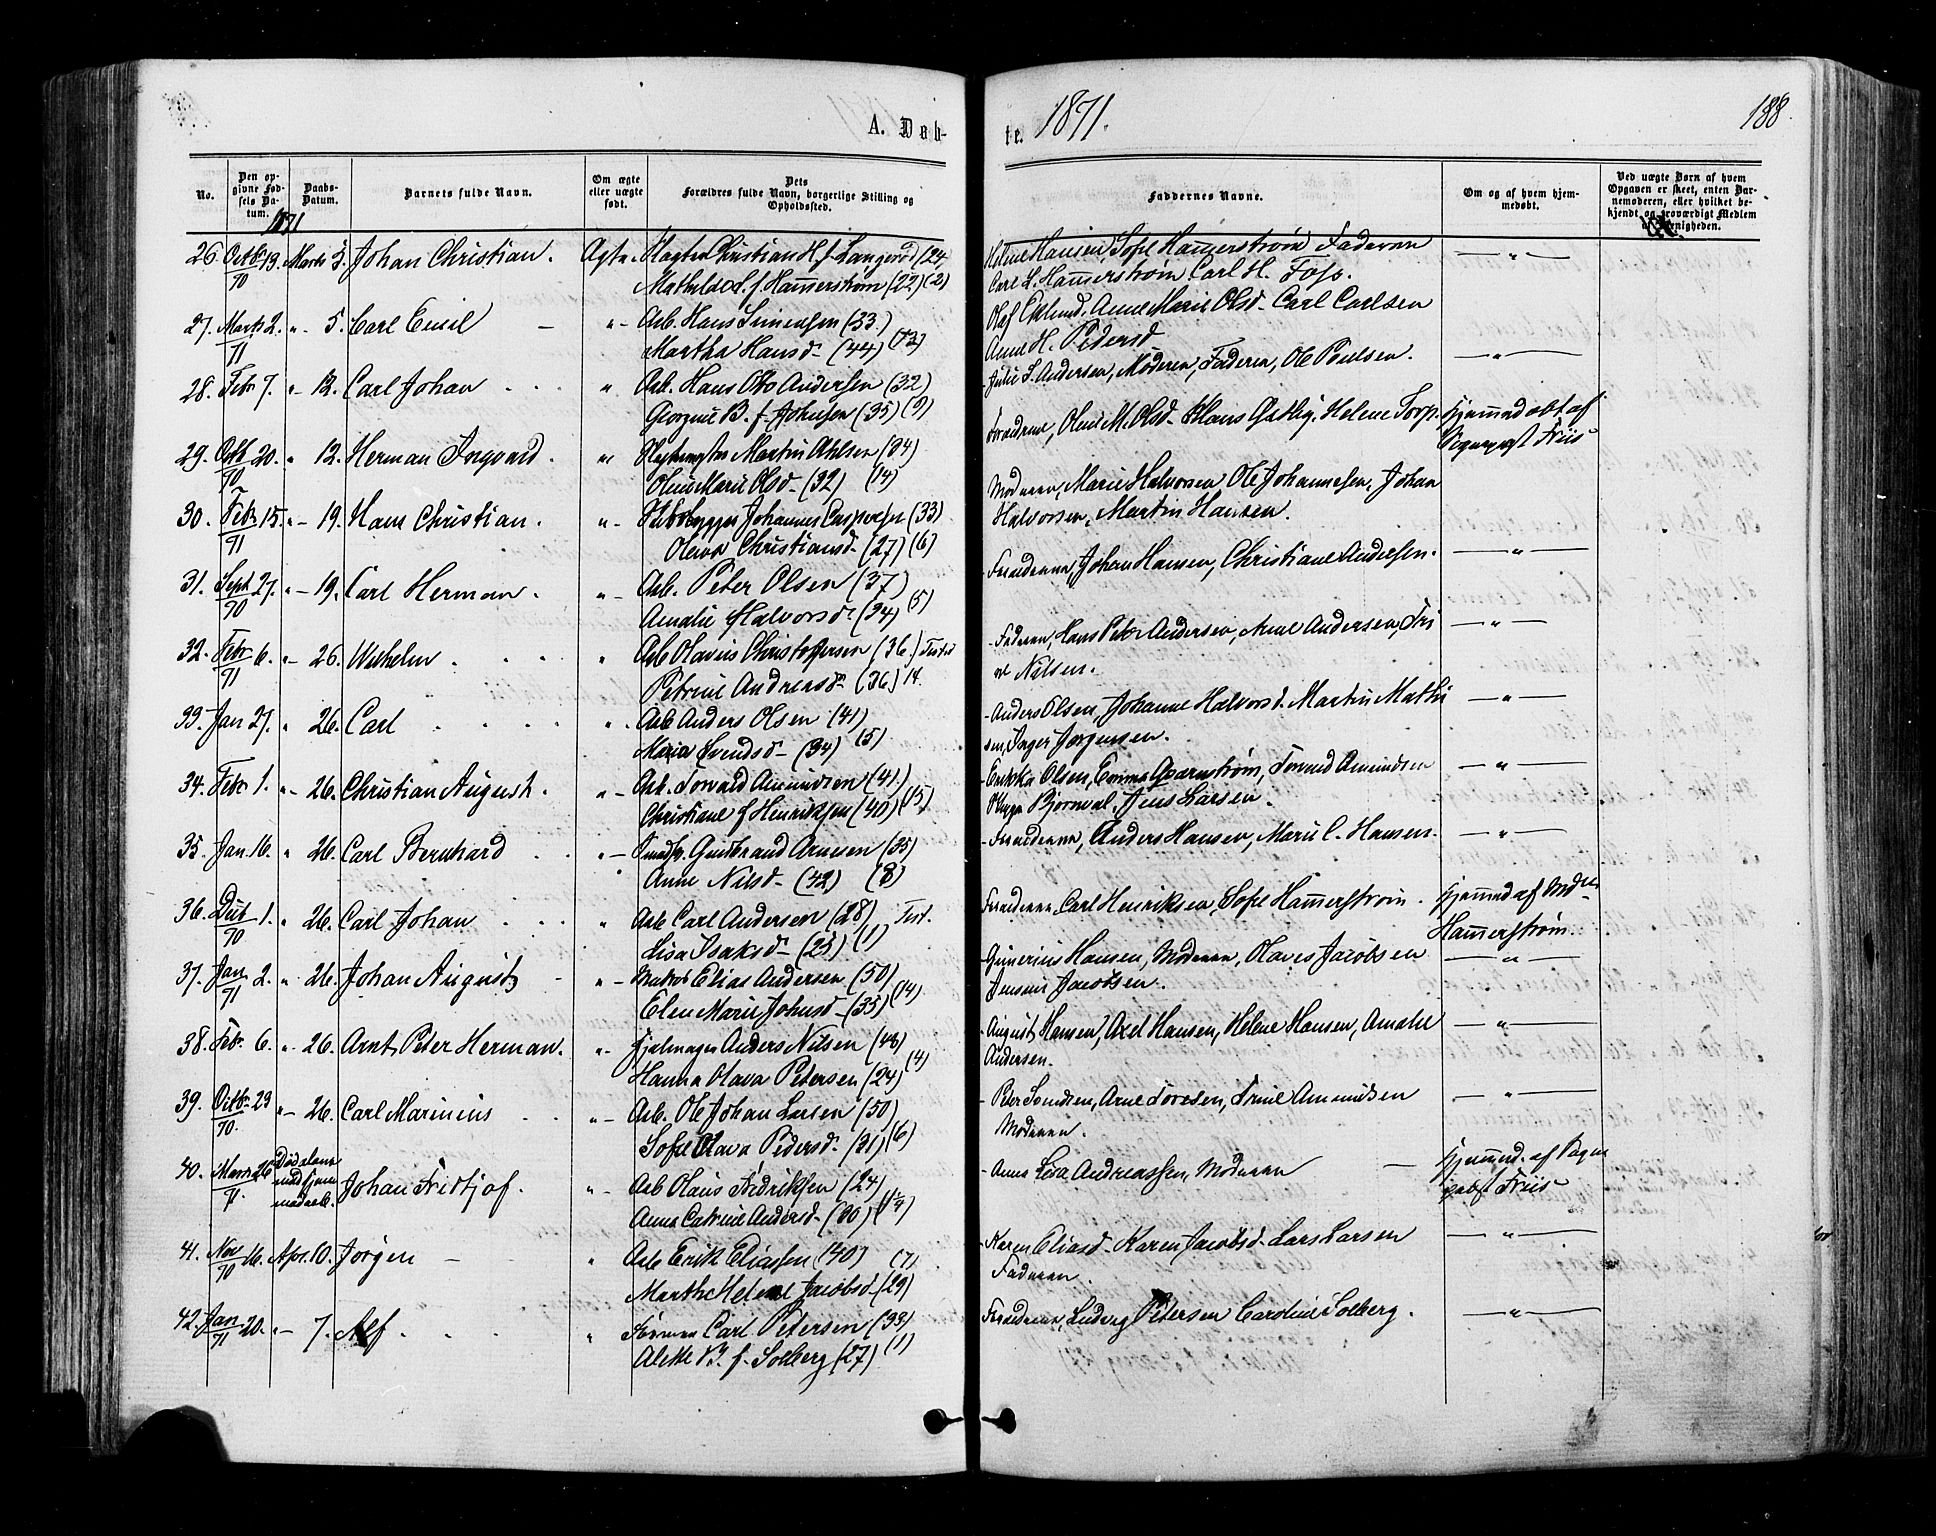 A. Døb-
te. 1871.
188.
No.
Den opgivne Fødsels Datum.
Daabs-Datum.
Barnets fulde Navn.
Om ægte eller uægte født.
Dets Forældres fulde Navn, borgerlige Stilling og Opholdssted.
Faddernes Navne.
Om og af hvem hjemmedøbt.
Ved uægte Børn af hvem Opgaven er skeet, enten Barnemoderen, eller hvilket bekjendt og troværdigt Medlem af Menigheden.
1871
26. Octbr 13. /70 Marts 5. Johan Christian. Ægte. Christian H. f. Langerød (24
Mathilde f. Hammerstrøm (22) (2)
Helene Hansen, Sofie Hammerstrøm Faderen
Carl L. Hammerstrøm Carl H. Foss.
27. Marts 2. /71 " - 5. Carl Emil - " - Arb. Hans Simensen (33.)
Martha Hansd - (44) (13)
Olaf Eklund. Anne Marie Olsd - Carl Carlsen
Anne H. Pedersd
28. Febr 7. " - 12. Carl Johan . . " Arb. Hans Otto Andersen (32)
Georgine B. f. Johnsen (35) (9)
- Julie S. Andersen, Moderen, Faderen, Ole Poulsen. - " -
29. Octb 20. /70 " 12. Herman Ingvard. " Martin Ahlsen (34)
Oline Marie Olsd - (32) (14)
Forældrene, Oline M. Olsd - Hans Helene Torp. Hjemmedøbt af
Friis
30. Febr 15. /71 " - 19. Hans Christian. " - Johannes Caspersen (33)
Oleva Christiansd - (27) (6)
Moderen, Marie Halvorsen Ole Johannesen, Johan
Halvorsen, Martin Hansen.
31. Sept 27. /70 " - 19. Carl Herman. " - Arb. Peter Olsen (37)
Amalie Halvorsd - (34) (5)
- Forældrene, Johan Hansen, Christiane Andersen. - " -
32. Febr 6. /71 " - 26. Wilhelm. . . " Arb Olavus Christofersen (36.)
Petrine Andreasd - (36) 14.
- Faderen, Hans Peter Andersen, Anne Andersen, Tri
ne Nilsen. - " -
33. Jan 27. " 26. Carl . . . " . Arb Anders Olsen (41)
Maria Svendsd - (34) (5)
- Anders Olsen, Johanne Halvorsd. Martin Mathi
sen, Inger Jørgensen. - " -
34. Febr 1. " - 26. Christian August. " - Arb. Torvald Amundsen (41.)
Christiane f Henriksen (40) (15)
- Erikka Olsen, Emma Torvald Amundsen
Jens Larsen. - " -
35. Jan. 16. " 26. Carl Bernhard . . " - Gulbrand Arnesen (35)
Anne Nilsd - (42) (8)
- Forældrene, Anders Hansen, Marie C. Hansen. - " -
36. Dcb 1. /70 " 26. Carl Johan . . " Arb Carl Andersen (28) Tist.
Lisa Isaksd - (25) (1)
Forældrene, Carl Henriksen, Sofie Hammerstrøm. Hjemmed af Md
Hammerstrøm.
37. Jan 2. /71 " 26. Johan August - " - Matros Elias Andersen (50)
Elen Marie Johnsd - (35) (14)
- Gunerius Hansen, Moderen, Olaves Jacobsen
Jacobsen. - " -
38. Febr. 6. " - 26. Arnt Peter Herman. " - Anders Nilsen (48)
Hanna Olava Petersen (24) (4)
- August Hansen, Axel Hansen, Helene Hansen, Amalie
Andersen. - " -
39. Octbr. 23 /70. " - 26. Carl Marinius . . " - Arb. Ole Johan Larsen (50)
Sofie Olava Pedersd. (31) (6)
- Peter Svendsen, Arne Toresen, Trine Amundsen
Moderen. - " -
40. Marts 26 /71. Død alene
med Hjem
medaab. Johan Fritjof. " - Arb Olaus Fredriksen (24)
Anna Catrine Andersd - (30)
- Anna Lisa Andreassen, Moderen - Hjemmed. af Sogne
præst Friis
41. Nov 16. /70 Apr. 10. Jørgen - " Arb Erik Eliassen (40) (7)
Marthe Helene Jacobsd - (29)
- Karen Eliasd - Karen Jacobsd - Lars Larsen
Faderen. - " -
42. Jan 20. /71 " - 7. Alf. . . " Carl Petersen (33) (1)
Alette B. f. Solberg (27)
Forældrene, Ludvig Petersen Caroline Solberg. - " -